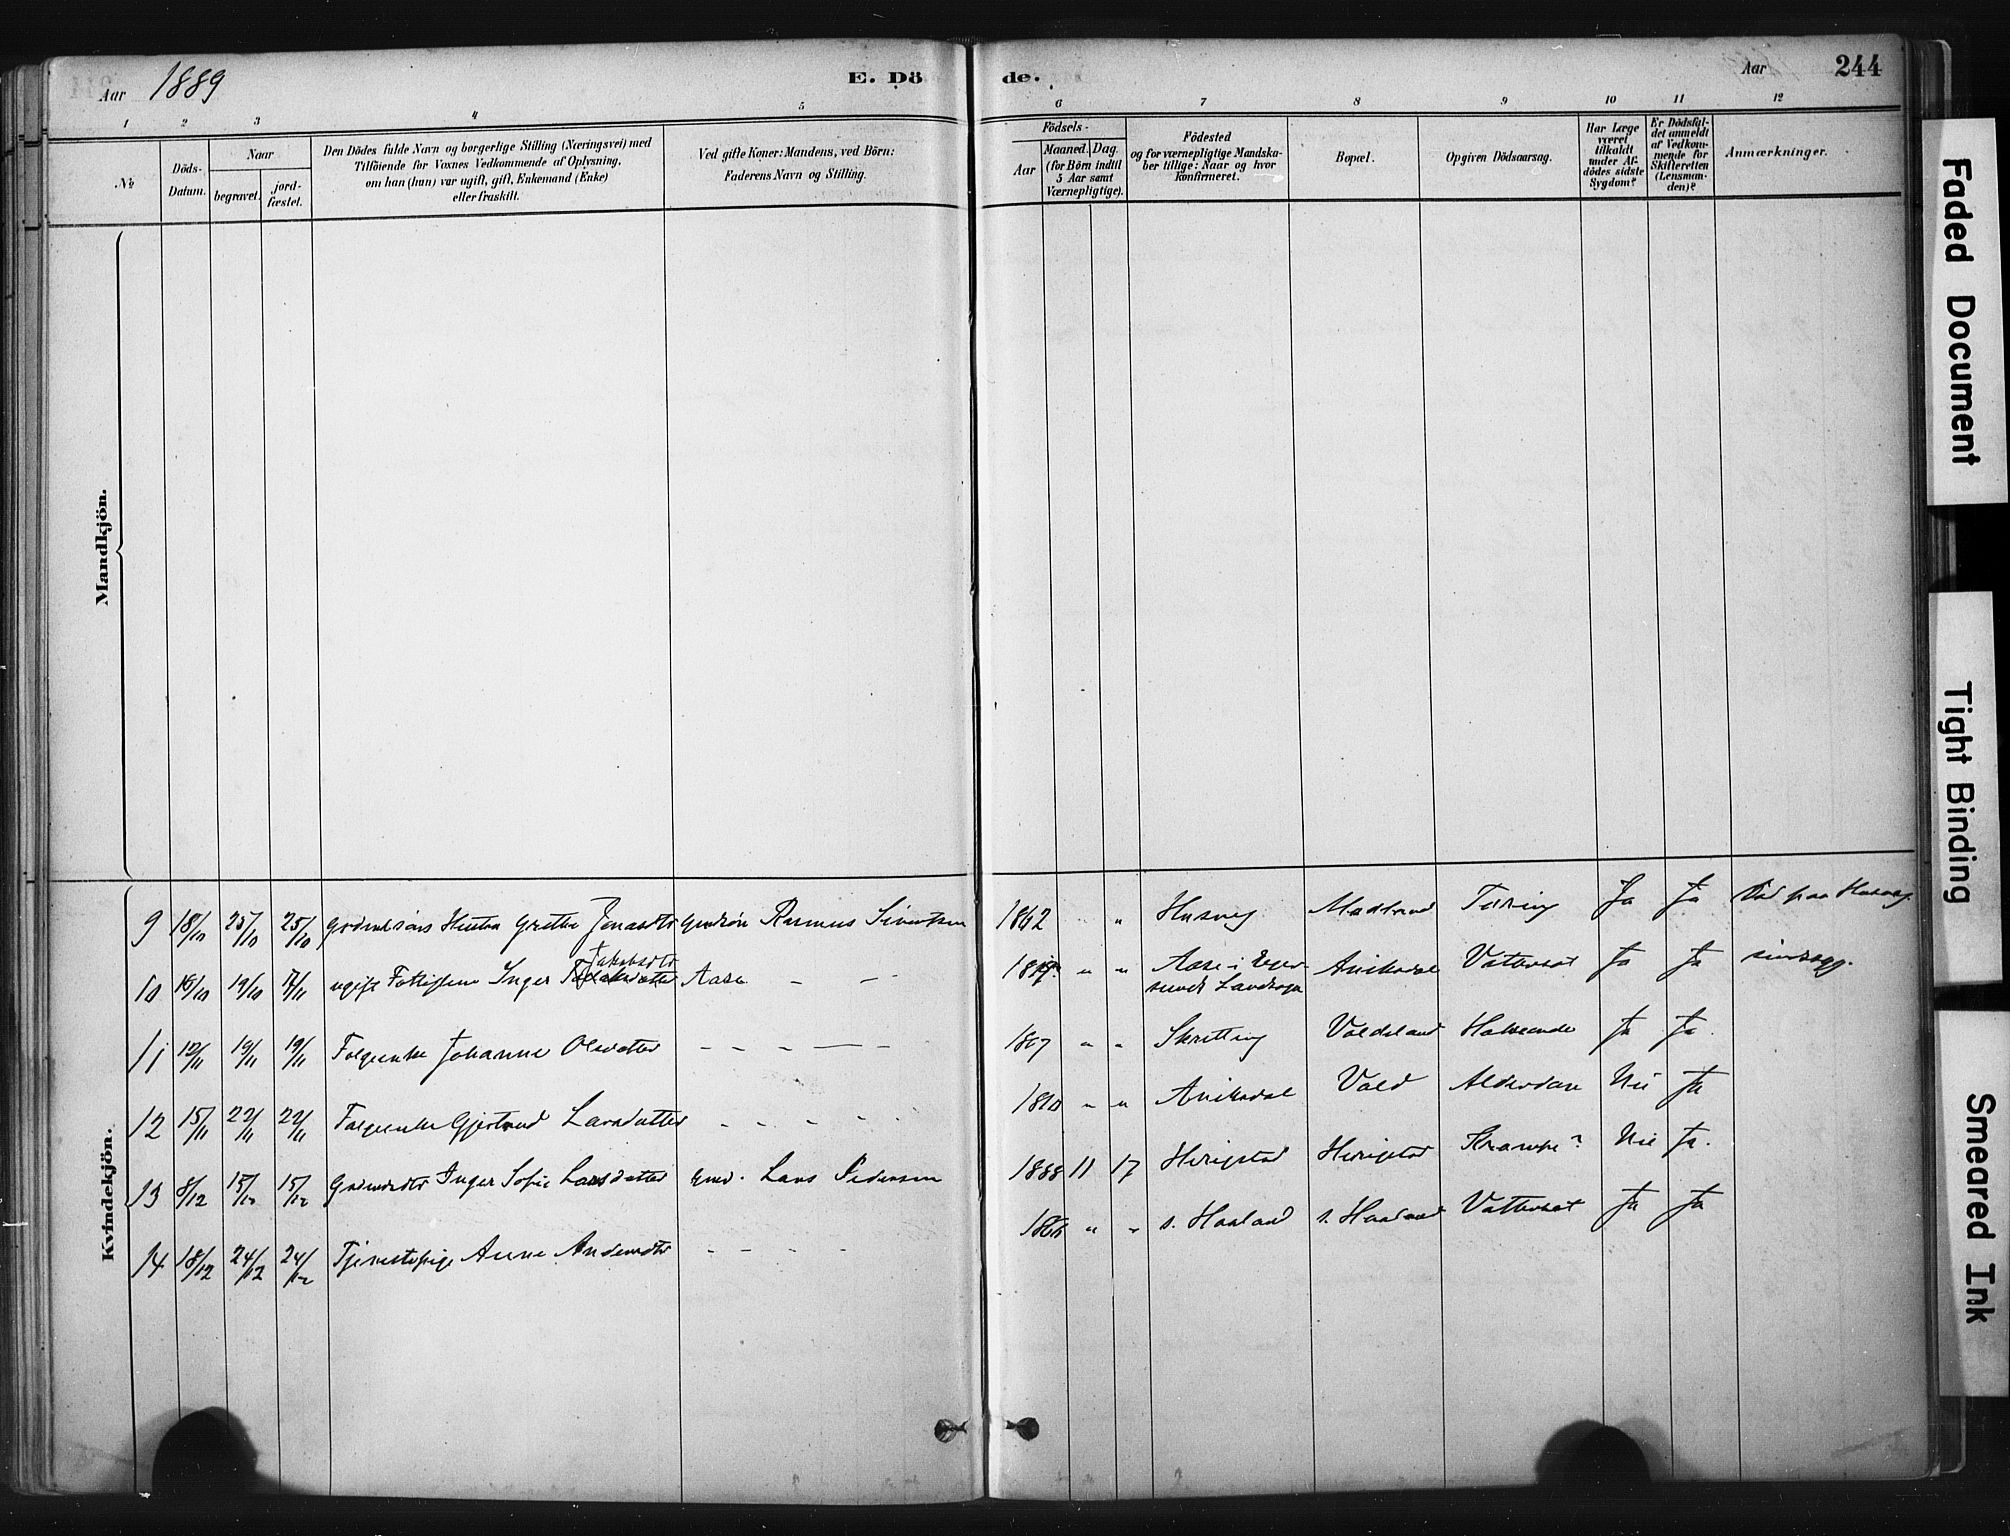 Aar 1889
E. Dö
de.
Aar
244
1 2 3 4 5 6 7 8 9 10 11 12
№
Döds-
Datum.
Naar
begravet.
jord-
fæstet.
Den Dödes fulde Navn og borgerlige Stilling (Næringsvei) med
Tilföiende for Voxnes Vedkommende af Oplysning,
om han (hun) var ugift, gift, Enkemand (Enke)
eller fraskilt.
Ved gifte Koner: Mandens, ved Börn:
Faderens Navn og Stilling.
Födsels-
Aar
Maaned. Dag.
(for Börn indtil
5 Aar samt
Værnepligtige).
Födested
og for værnepligtige Mandska-
ber tillige: Naar og hvor
Konfirmeret.
Bopæl.
Opgiven Dödsaarsag.
Har Læge
været
tilkaldt
under Af-
dödes sidste
Sygdom?
Er Dödsfal-
det anmeldt
af Vedkom-
mende for
Skifteretten
(Lensman-
den)?
Anmærkninger.
Mandkjön.
Kvindekjön.
9 18/10 25/10 25/10 Grethe Jonasdtr Rasmus Sivertsen 1862 " Husveg Madland Tæring Ja Ja Död paa Husveg
Jakobsdtr
10 15/10 19/10 7/11 ugift Inger Aase - - " " Aase i Eger- Aniksdal Ja Ja
sunds Landsogn
11 12/11 19/11 19/11 Folgeenke Johanne Olsdatter - - - - - 1807 " " Skretting Voldsland Ja Ja.
12 15/11 22/11 22/11 Folgeenke Gjertrud Larsdatter - - - - 1810 " " Aniksdal Vold Nei Ja
13 8/12 15/12 15/12 Inger Sofie Larsdatter Gmd. Lars Pedersen 1888 11 17 Herigstad Herigstad Krampe? Nei Ja.
14 18/12 24/12 24/12 Tjenestepige Anne - - - - 1866 " " s. Haaland s. Haaland Vattersot Ja Ja
Faded Document
Tight Binding
Smeared Ink